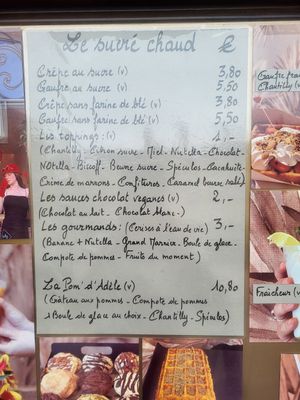 Le sucré chaud €
Crêpe au sucre (v) 3,80
Gaufre au sucre (v) 5,50
Crêpe sans farine de blé (v) 3,80
Gaufre sans farine de blé (v) 5,50
Les toppings : (v) 1,-
(Chantilly - Citron sucre - Miel - Nutella - Chocolat -
Nötella - Biscoff - Beurre sucre - Spéculos - Cacahuète
Crème de marrons - Confitures - Caramel beurre salé)
Les sauces chocolat veganes (v) 2,-
(Chocolat au lait - Chocolat blanc -)
Les gourmands : (Cerises à l'eau de vie) 3,-
(Banane + Nutella - Grand Marnier - Boule de glace -
Compote de pommes - Fruits du moment)
La Pom' d'Adèle (v) 10,80
(Gâteau aux pommes - Compote de pommes
1 Boule de glace au choix - Chantilly - Spéculos)
Gaufre
Chantilly (v)
Fraîcheur (v)